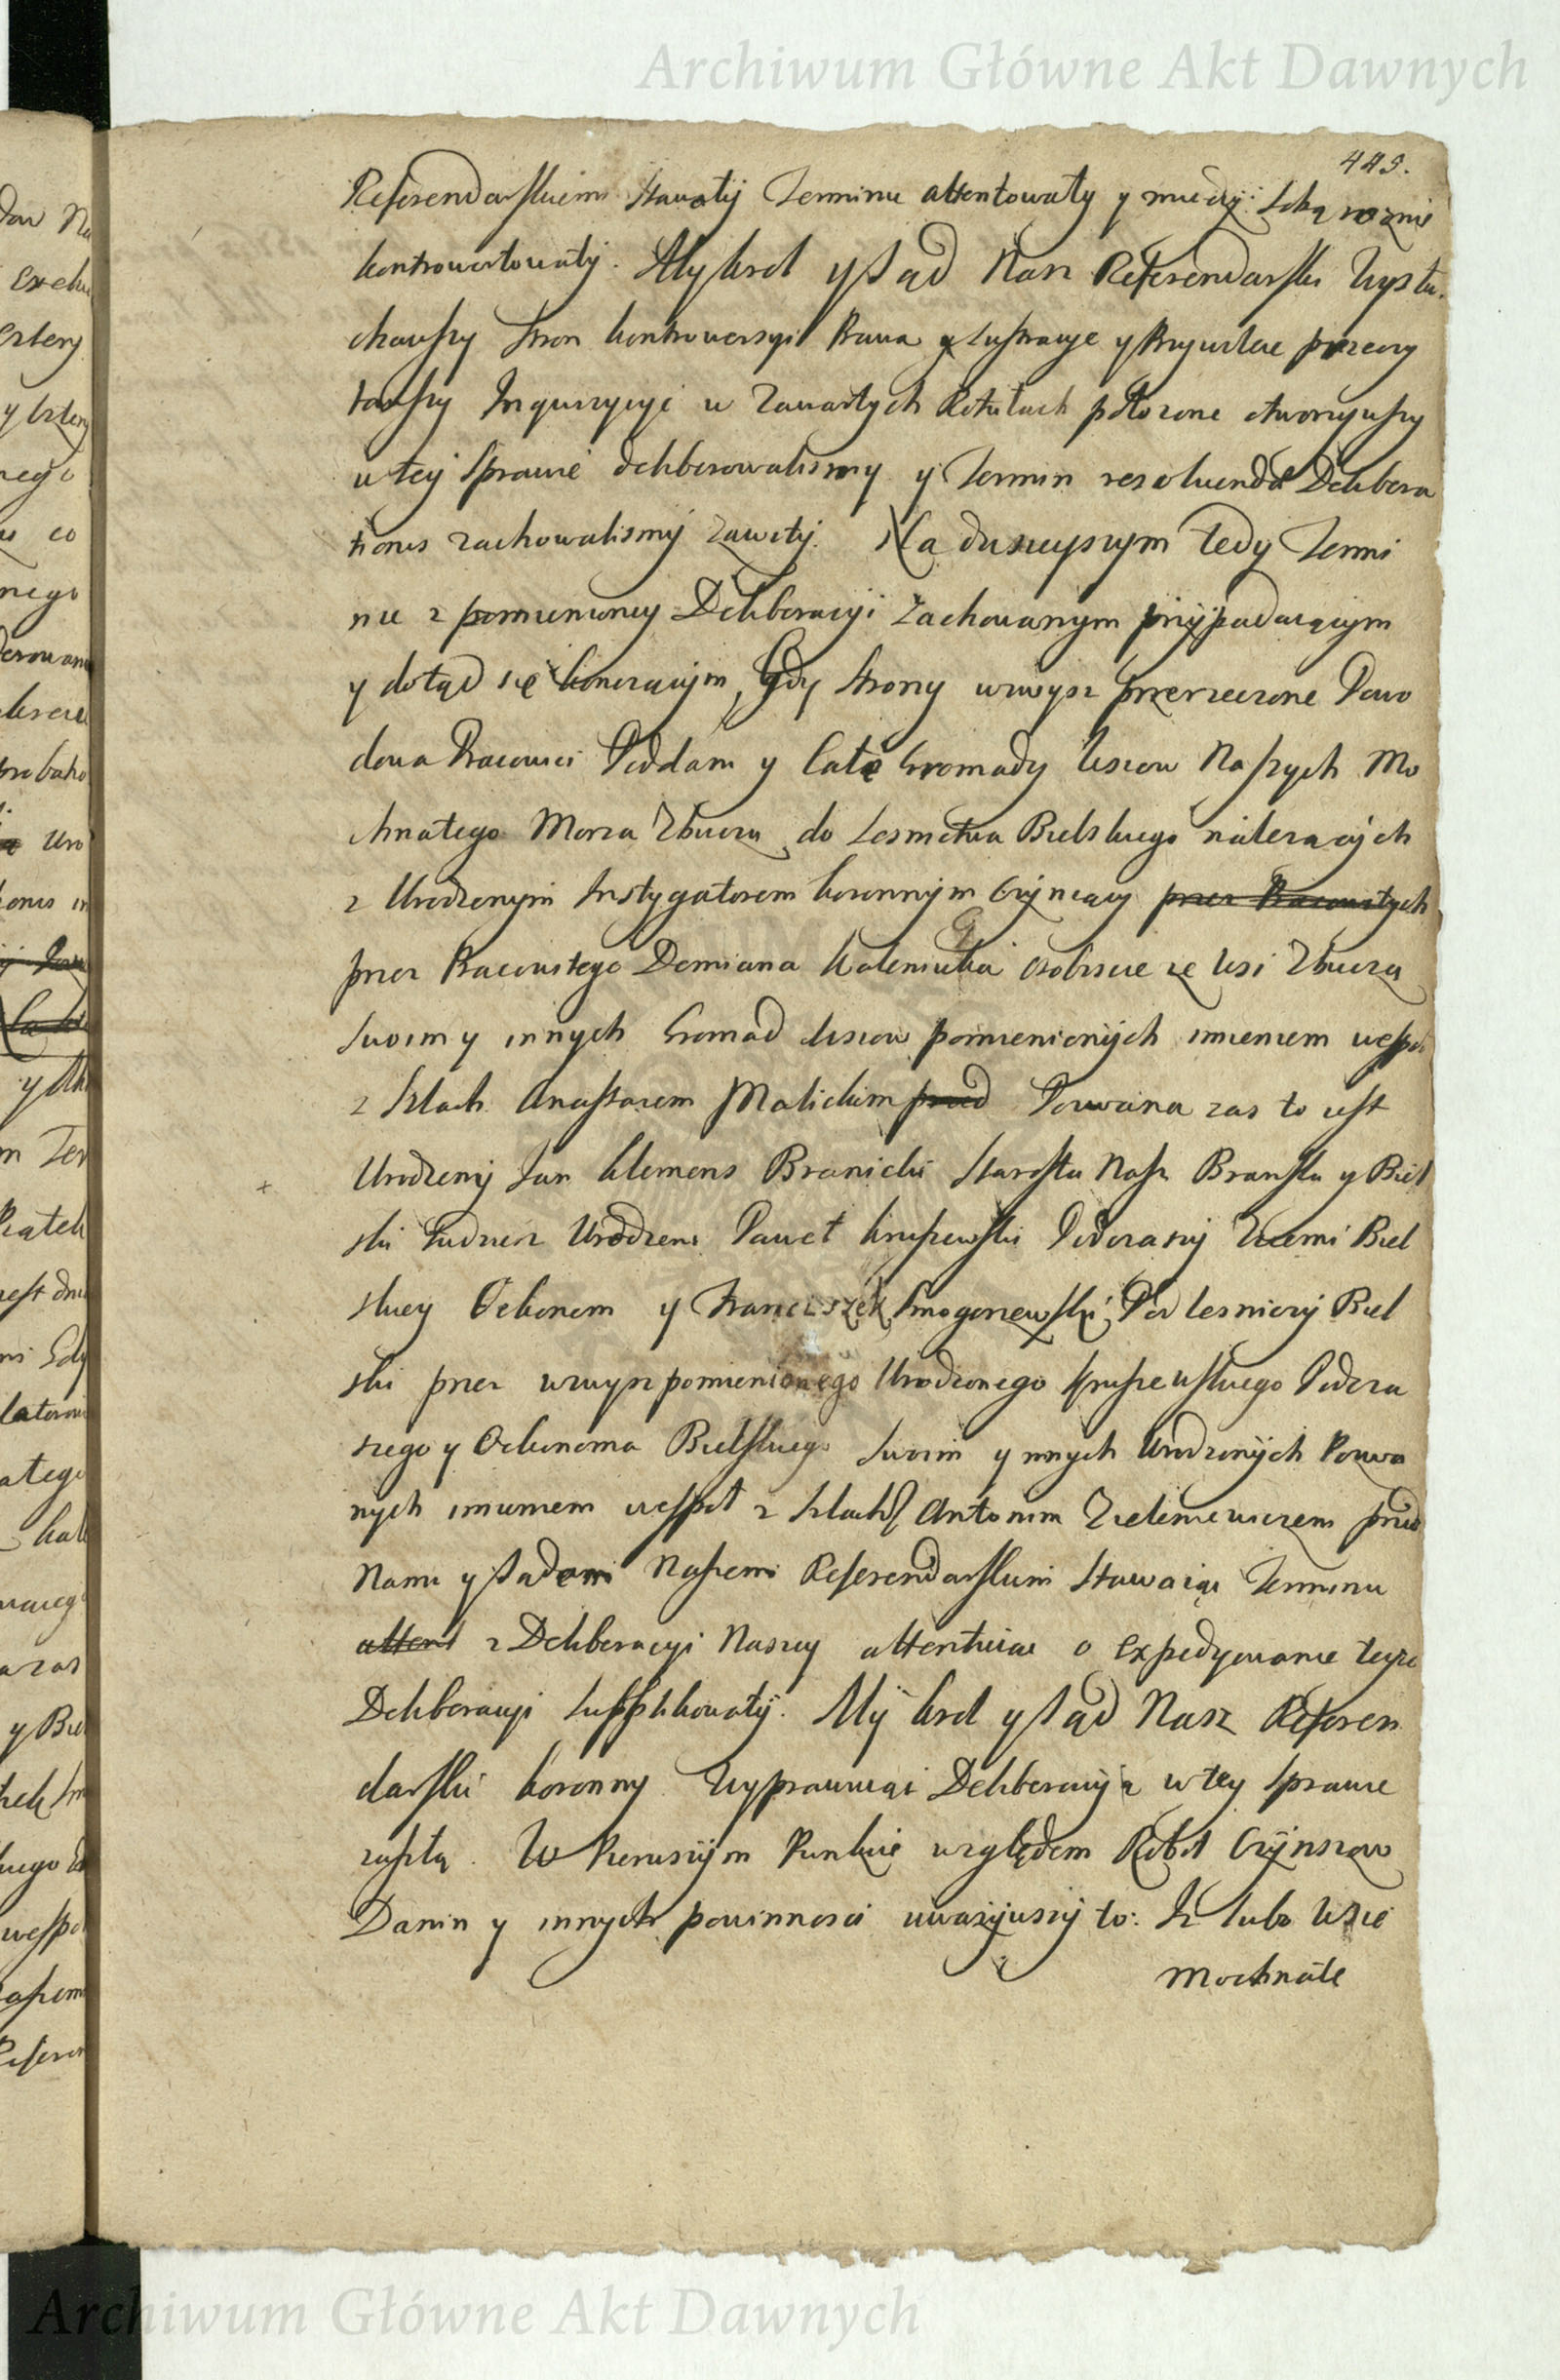 Archiwum Główne Akt Dawnych
443.
Referendarskiemi stawały Terminu attentowały y między sobą roznie
kontrowertowały. My Krol y Sąd Nasz Referendarski Wysłu
chawszy stron kontrowersyi Prawa y Lustracye y Przywileie przeczy
tawszy Inquizycye w zawartych Rotułach połozone otworzywszy
w tey sprawie deliberowalismy y Termin resolvenda Delibera
tionis zachowalismy zawity. Na dzisieyszym tedy Termi
nie z pomienioney Deliberacyi zachowanym przypadaiącym
y dotąd się konczącym, Gdy strony wzwysz przerzeczone Powo
dowa Pracowici Poddani y Całe Gromady Wsiow Naszych Mo
chnatego Morza Zbucza do Lesnictwa Bielskiego należących
z Urodzonym Instygatorem koronnym Czyniący przez Pracowitych
przez Pracowitego Demiana osobiscie ze Wsi Zbucza
swoim y innych Gromad Wsiow pomienionych imieniem wespoł
z Szlach. Anastazem Malickim przed Pozwana zas to iest
Urodzony Jan Klemens Branicki Starosta Nasz Branski y Biel
ski tudziesz Urodzeni Paweł Kruszewski Podczaszy Ziemi Biel
skiey Oekonom y Franciszek Smogorzewski Podlesniczy Biel
ski przez wzwysz pomienionego Urodzonego Kruszewskiego Podcza
szego y Oekonoma Bielskiego swoim y innych Urodzonych Pozwa
nych imieniem wespoł z Szlach. Antonim Zieleniewiczem przed
Nami y Sądem Naszemi Referendarskiemi stawaiąc Terminu
attent z Deliberacyi Naszey attentuiac o expedyowanie teyze
Deliberacyi supplikowały. My Krol y Sąd Nasz Referen
darski koronny Wyprawuiąc Deliberacyą w tey sprawie
zaszłą. W Pierwszym Punkcie względem Robot Czynszow
Danin y innych powinnosci uwazywszy to: Iz lubo Wsie
Mochnate
Archiwum Główne Akt Dawnych